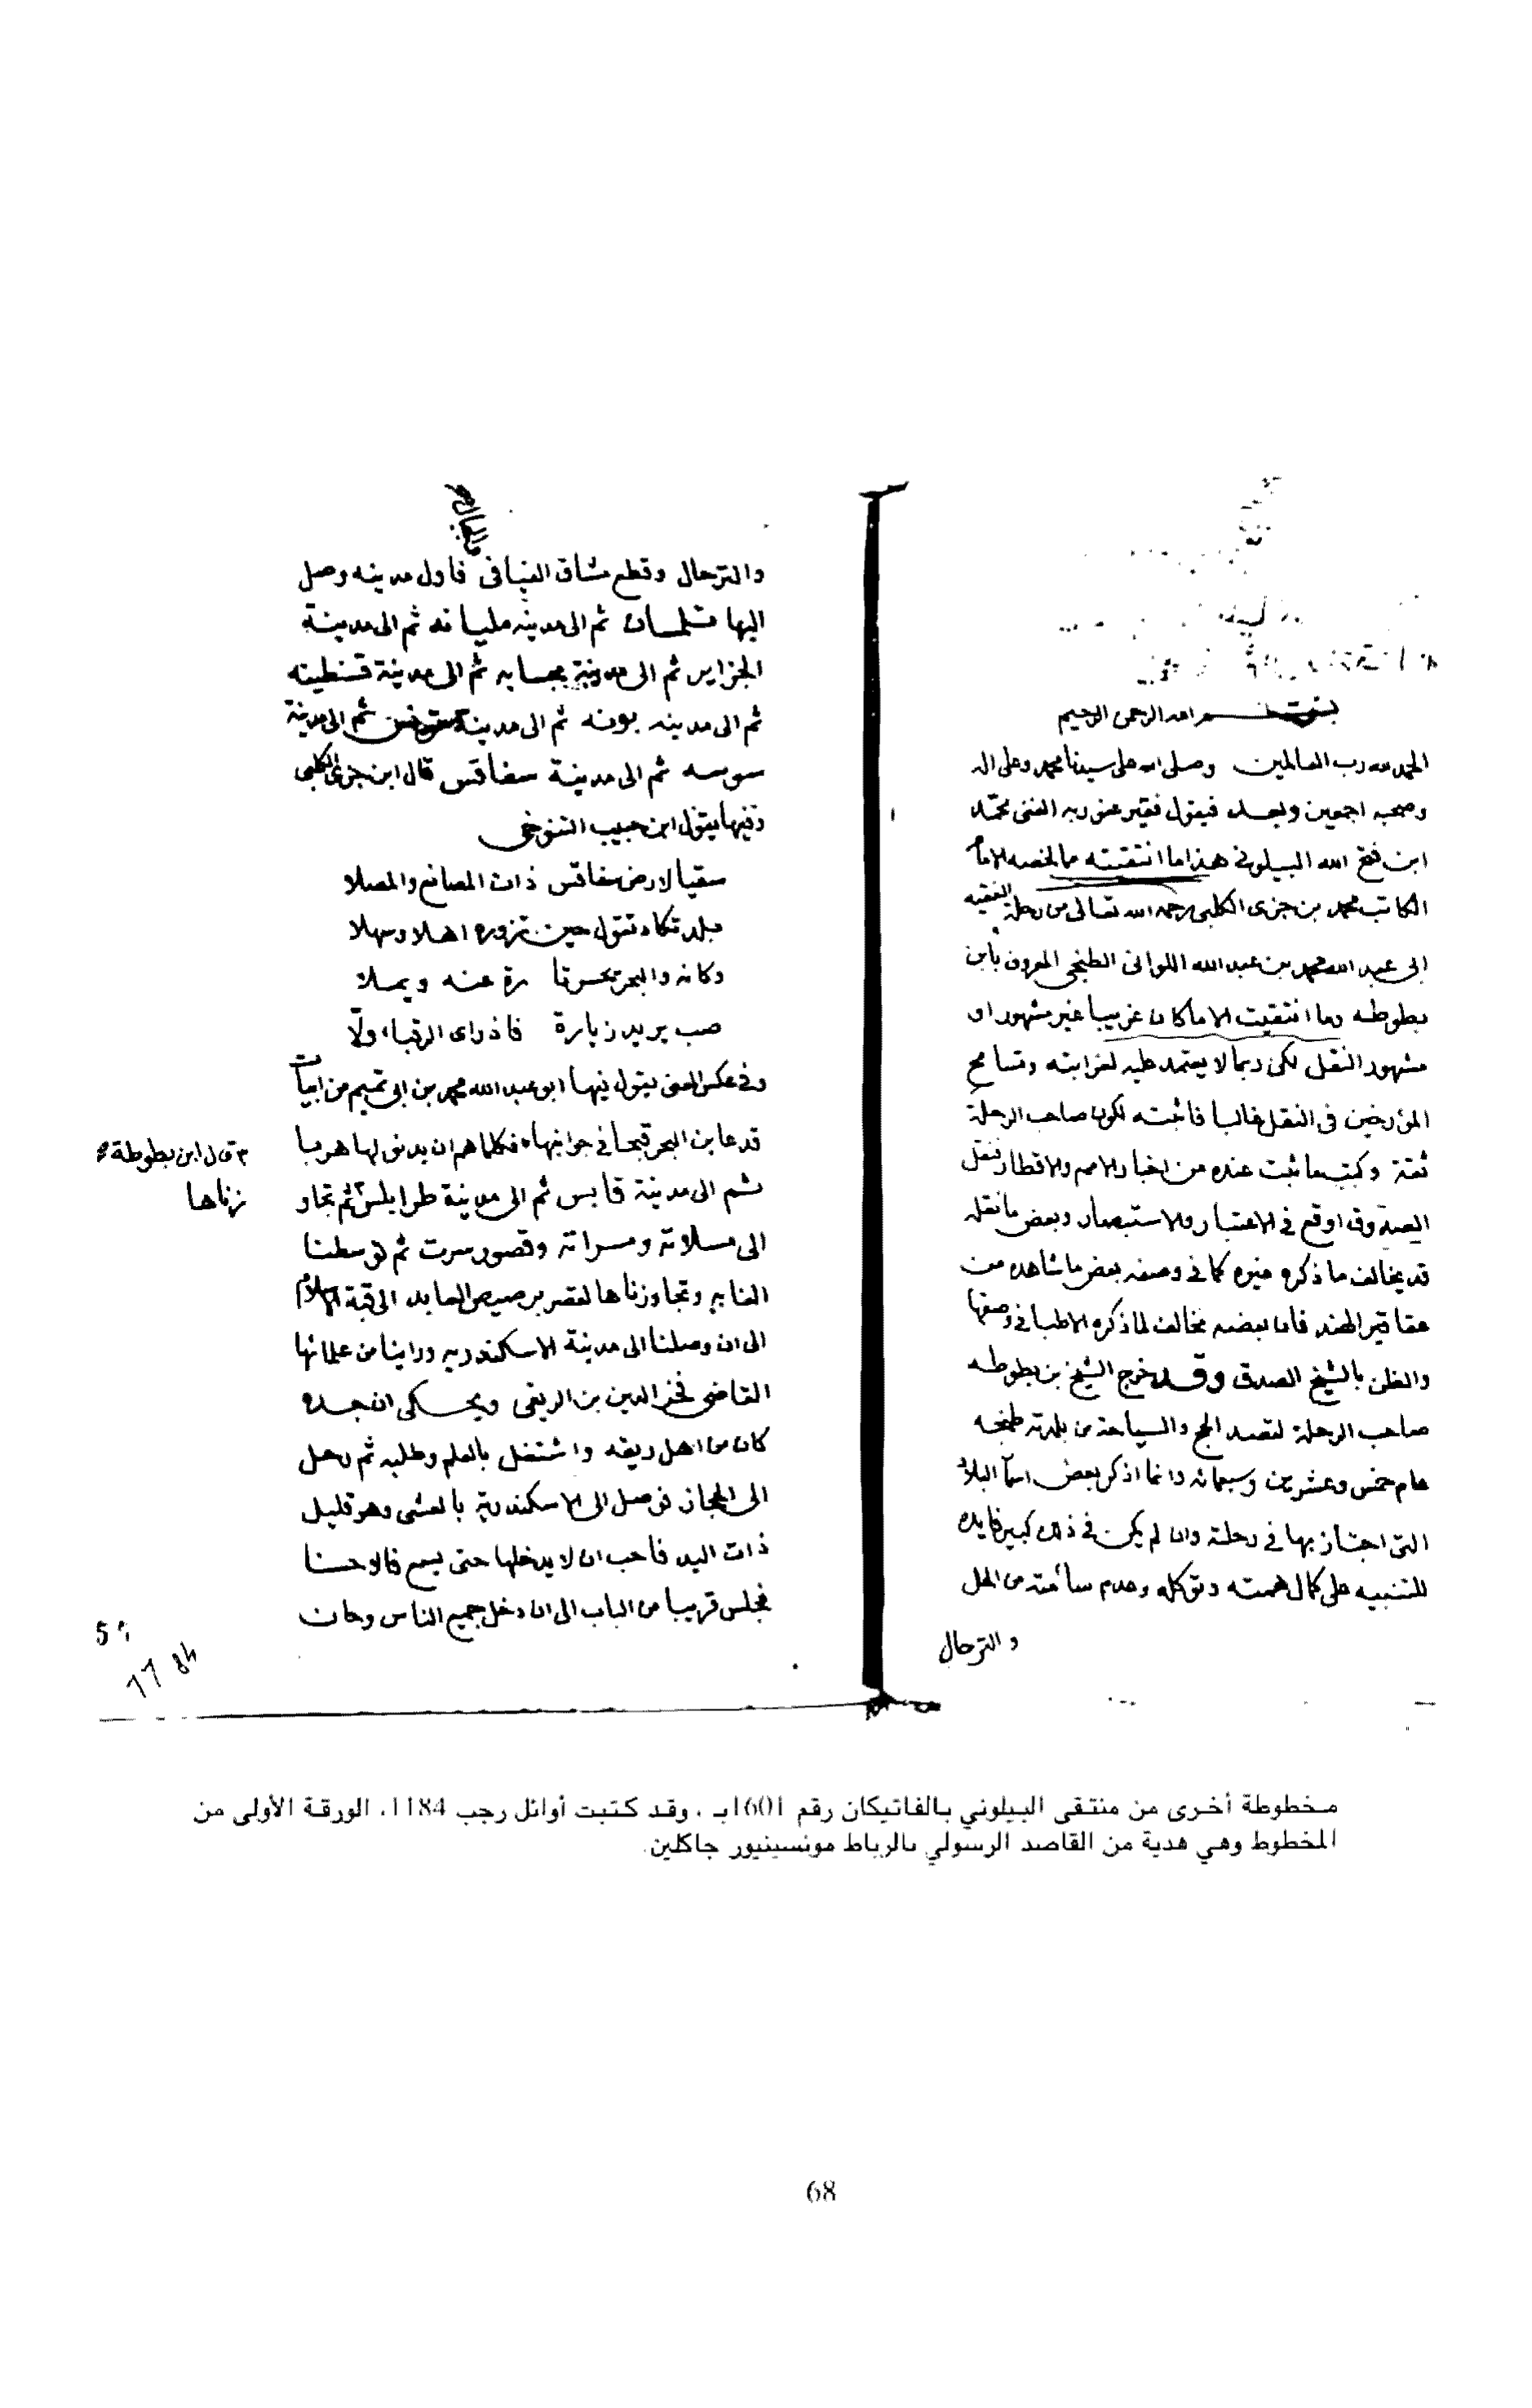 بسم الله الرحمن الرحيم
الحمد لله رب العالمين وصلى الله على سيدنا محمد وعلى اله
وصحبه اجمعين وبعد فيقول فقير عفو ربه الغنى محمد
ابن فتح الله البيلونى هذا ما انتقيته مما لخصه الامام
الكاتب محمد بن جزى الكلبى رحمه الله تعالى من رحلة الفقيه
ابى عبد الله محمد بن عبد الله اللواتى الطنجى المعروف بابن
بطوطه وما انتقيت الا ما كان غريبا غير مشهور او
مشهور النقل لكن ربما لا يعتمد عليه لغرابته وتسامح
المؤرخين فى النقل غالبا فاثبته لكون صاحب الرحلة
ثقة وكتب ما ثبت عنده من اخبار الامم والاقطار نقل
اوقع فى الاعتبار والاستبصار وبعض ما نقله
قد يخالف ما ذكره غيره كما فى وصفه بعض ما شاهده من
عقاقير الهند فان بعضه مخالف لما ذكره الاطبا فى وصفها
والظن بالشيخ الصدق وقد خرج الشيخ بن بطوطه
صاحب الرحلة لقصد الحج والسياحة من بلدته طنجه
عام خمس وعشرين وسبعمائة وانما اذكر بعض اسماء البلاد
التى اجتاز بها فى رحلة وان لم يكن فى ذلك كبير فايده
للتنبيه على كمال همته وتوكله وعدم سآمته من الحل
والترحال
والترحال وقطع مشاق الفيافى فاول مدينه وصل
اليها تلمسان ثم الى مدينه مليانه ثم الى مدينة
الجزاير ثم الى مدينة بجايه ثم الى مدينة قسنطينه
ثم الى مدينه بونه ثم الى مدينة تونس ثم الى مدينة
سوسه ثم الى مدينة سفاقس قال ابن جزى الكلبى
وفيها يقول ابن حبيب التنوخى
سقيا لارض سفاقس ذات المصانع والمصلا
بلد تكاد تقول حين تزوره اهلا وسهلا
وكانه والبحر يحسر تا رة عنه ويملا
صب يريد زيارة فاذ راى الرقباء ولّا
وفى عكس المعنى يقول فيها ابو عبد الله محمد بن ابى تميم من ابيات
قد عاين البحر قبحا فى جوانبها فكلما هم ان يدنو لها هربا
ثم الى مدينة قابس ثم الى مدينة طرابلس ثم تجاو
قال ابن بطوطة
زناها
الى مسلاتة ومسراتة وقصور سرت ثم توسطنا
الغابه وتجاوزناها لقصر برصيص العابد الى قبة
الى ان وصلنا الى مدينة الاسكندريه وراينا من علمائها
القاضى فخر الدين بن الريغى ويحكى ان جده
كان من اهل ريغه واشتغل بالعلم وطلبه ثم رحل
الى الحجاز فوصل الى الاسكندرية بالعشى وهو قليل
ذات اليد فاحب ان لا يدخلها حتى يسمع فالا حسنا
فجلس قريبا من الباب الى ان دخل جميع الناس وحان
مخطوطة أخرى من منتقى البيلوني بالفاتيكان رقم 1601ب ، وقد كتبت أوائل رجب 1184، الورقة الأولى من
المخطوط وهي هدية من القاصد الرسولي بالرباط مونسينيور جاكلين.
68